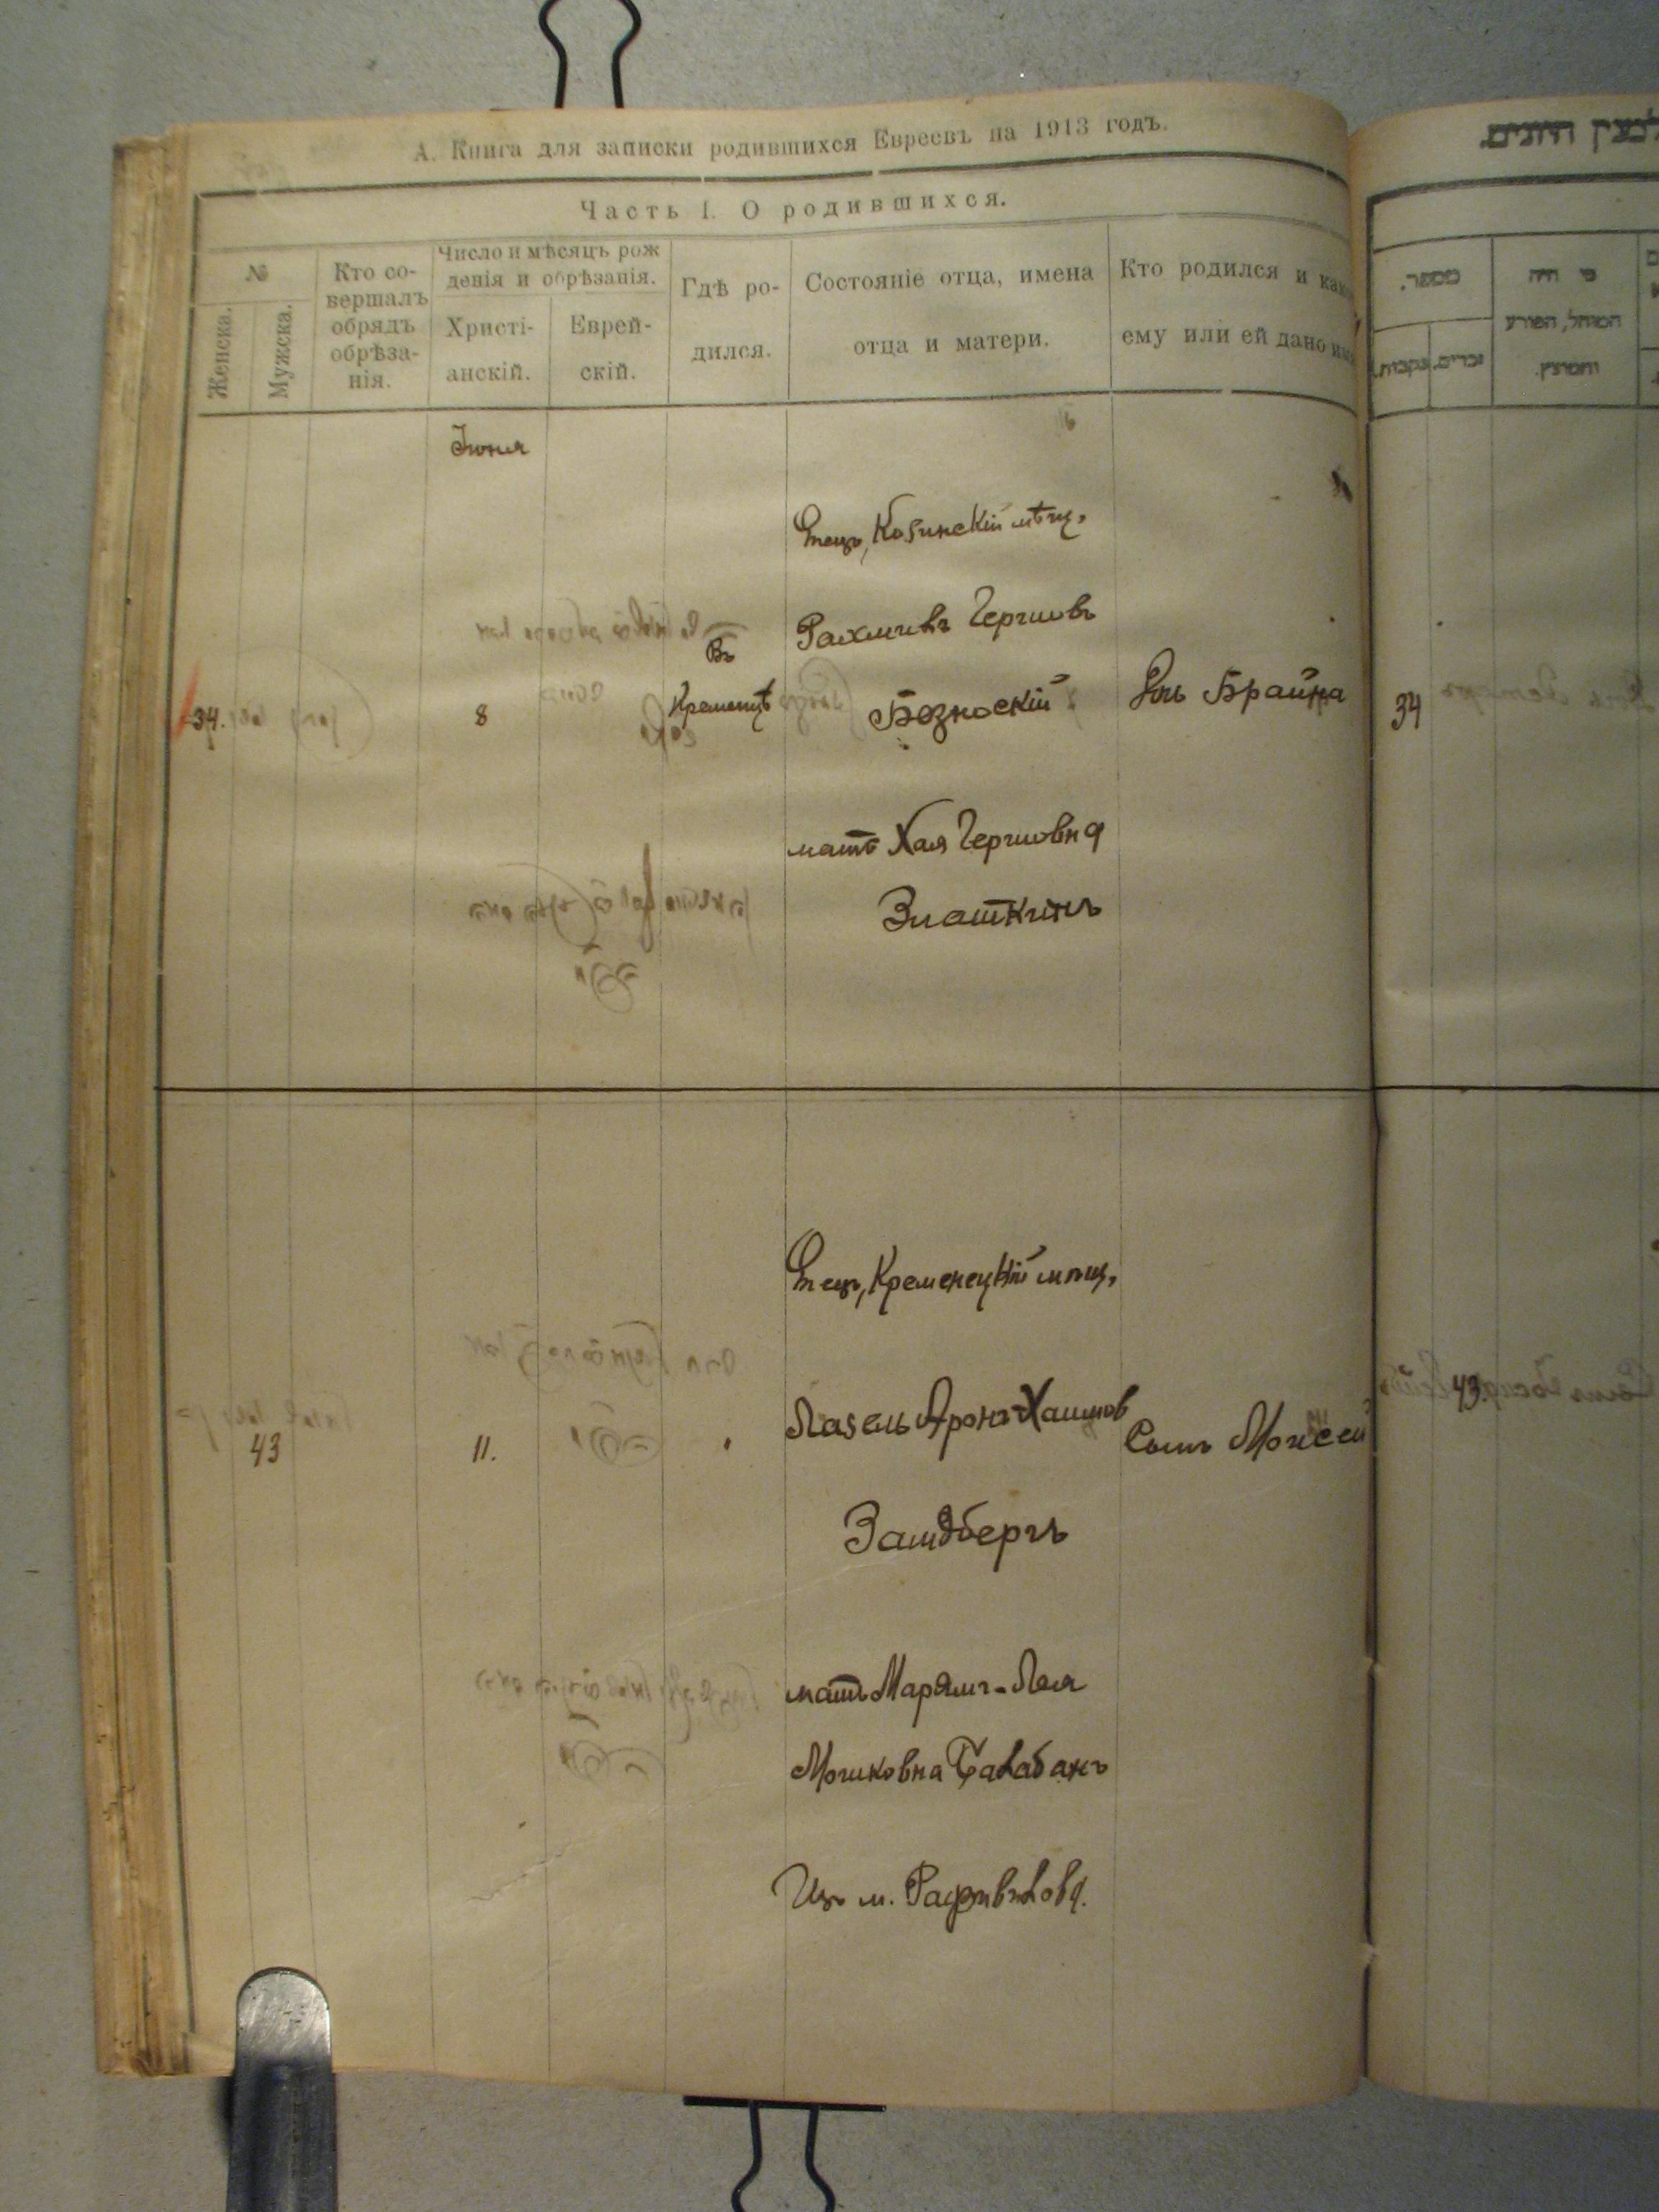 А. Книга для записки родившихся Евреевъ на 1913 годъ.
Часть I. О родившихся.
№
Женска.
Мужска.
Кто со-
вершалъ
обрядъ
обрѣза-
нія.
Число и мѣсяцъ рож
денія и обрѣзанія.
Христі-
анскій.
Еврей-
скій.
Гдѣ ро-
дился.
Состояніе отца, имена
отца и матери.
Кто родился и како
ему или ей дано имя
מספר.
נקבות.
זכרים.
מי היה
המוהל, הפורע
והמוצץ.
Іюня
34.
8
Въ
Кременцѣ
Отецъ, Козинскій мѣщ.
Рахмиль Гершовъ
Бознoскій
мать Хая Гершовна
Златкинъ
Дочь Брайна
34
43
11.
Отецъ, Кременецкій мѣщ.
Лазель Аронъ-Хаимов
Зайдбергъ
мать Марямъ-Лея
Мошковна Балабанъ
Изъ м. Радзивилова.
Сынъ Моисей
43